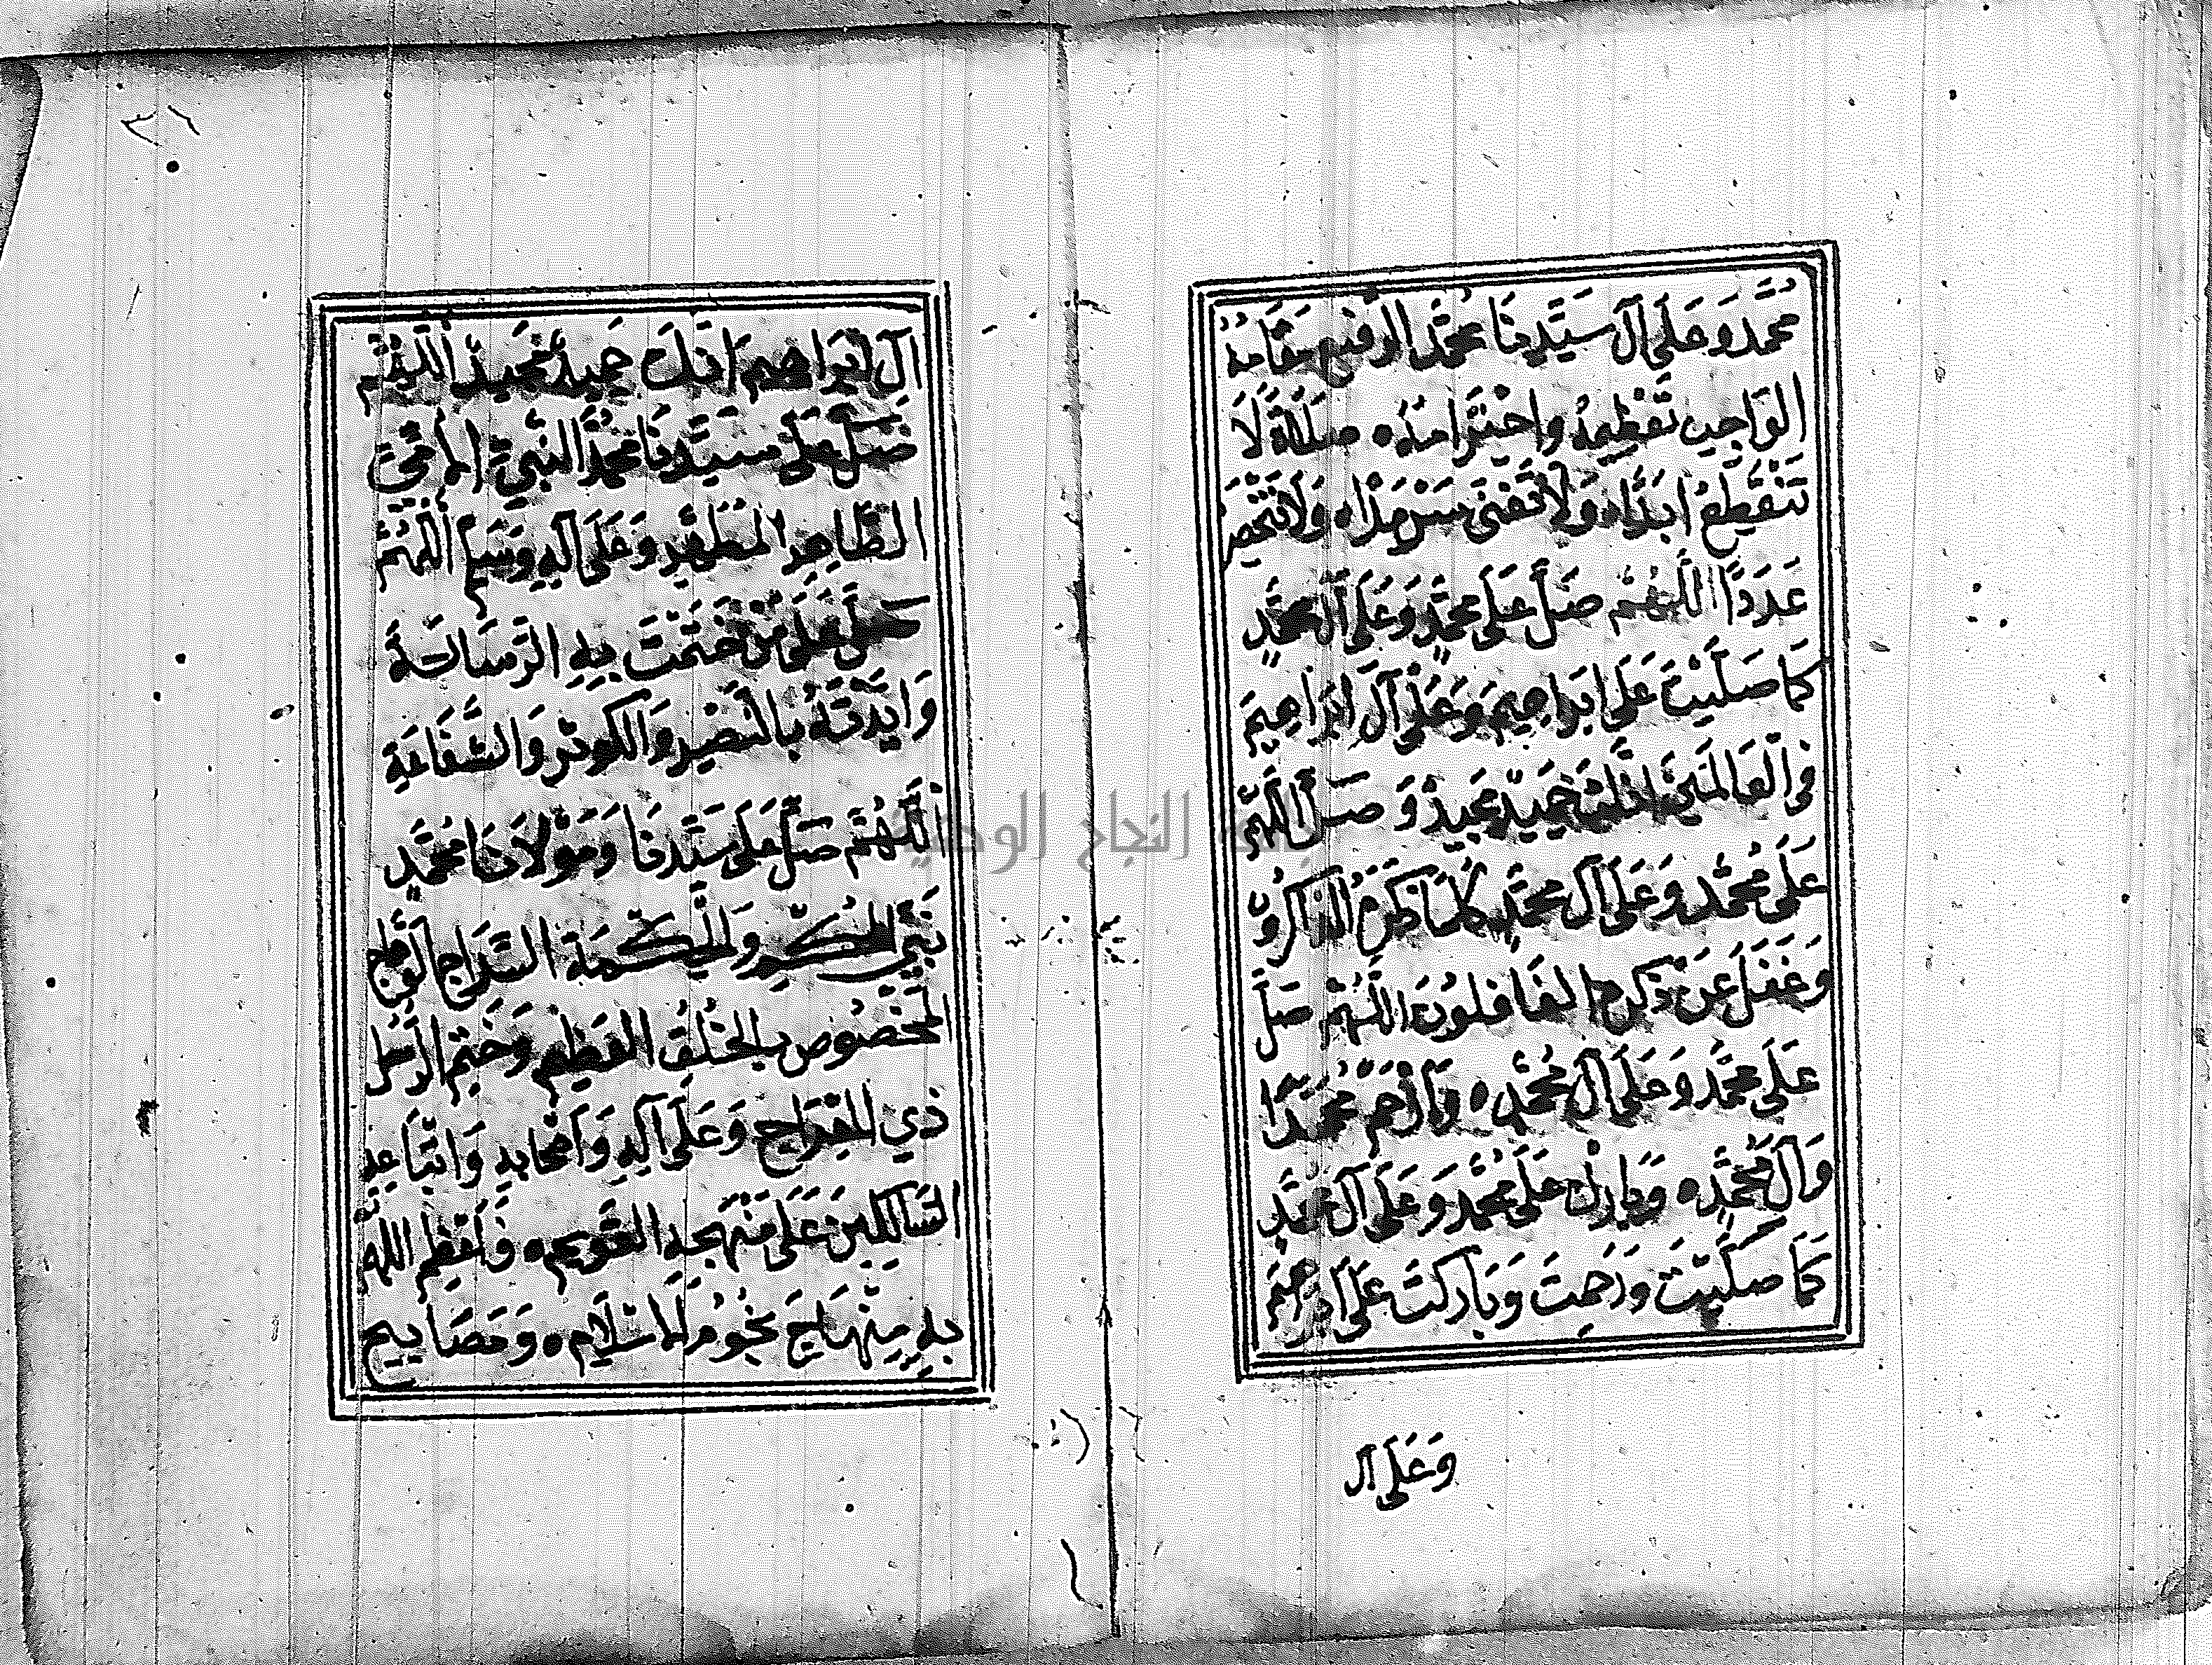 محمد وعلى آل سيدنا محمد الرفيع مقامه
الواجب تعظيمه واحترامه ۵ صلاة لا
تنقطع ابدا ۵ ولا تفنى سرمدا ۵ ولا تنحصر
عددا اللهم صل على محمد وعلى آل محمد
كما صليت على ابراهيم وعلى آل ابراهيم
في العالمين انك حميد مجيد وصل اللهم
على محمد وعلى آل محمد كلما ذكره الذاكرون
وغفل عن ذكره الغافلون اللهم صل
على محمد وعلى آل محمد ۵ وارحم محمدا
وآل محمد ۵ وبارك على محمد وعلى آل محمد
كما صليت ورحمت وباركت على ابراهيم
وعلى آل
آل ابراهيم انك حميد مجيد اللهم
صل على سيدنا محمد النبي الأمي
الطاهر المطهر وعلى آله وسلم اللهم
صل على من ختمت به الرسالة
وايدته بالنصر والكوثر والشفاعة
اللهم صل على سيدنا ومولانا محمد
نبي الحكم والحكمة السراج الوهاج
المخصوص بالخلق العظيم وختم الرسل
ذي المعراج وعلى آله واصحابه واتباعه
السالكين على منهجه القويم ۵ فأعظم اللهم
به منهاج نجوم الإسلام ۵ ومصابيح
جامعة النجاح الوطنية